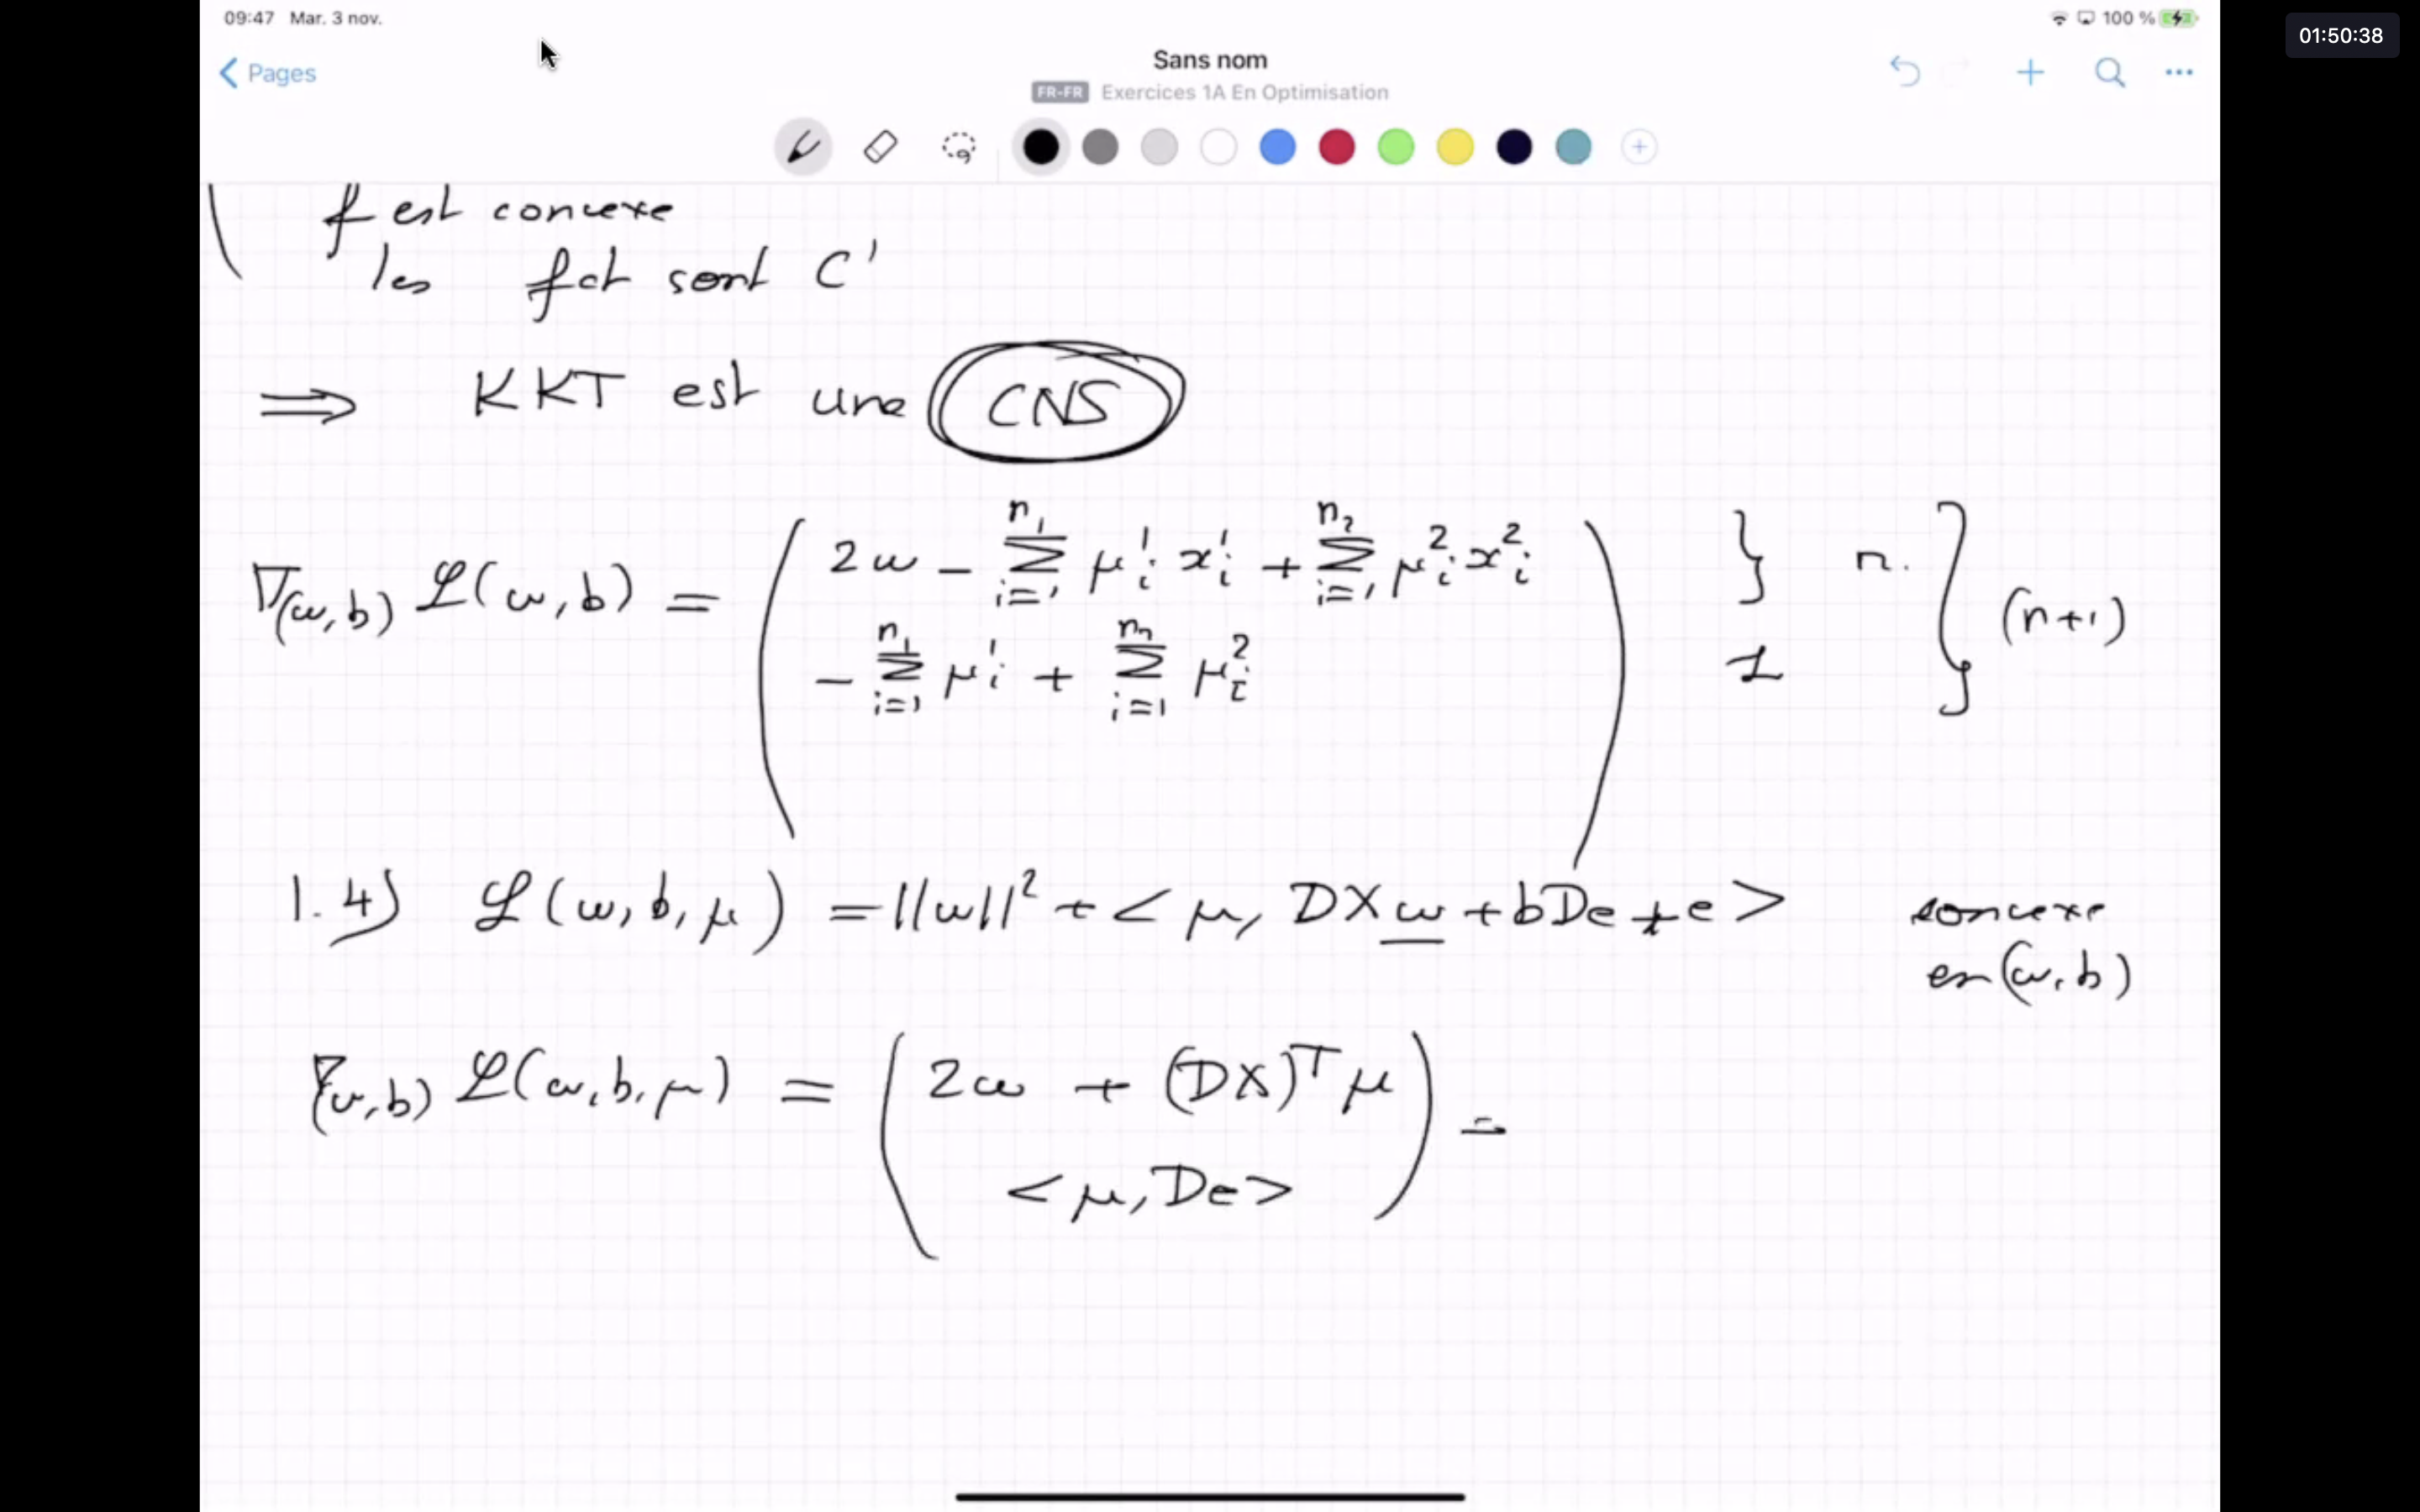 09:47 Mar. 3 nov.
100 %
01:50:38
Pages
Sans nom
FR-FR Exercices 1A En Optimisation
f est convexe
les fct sont C¹
⟹ KKT est une CNS
∇(w,b) ℒ(w,b) = ( 2w - ∑_{i=1}^{n₁} μ¹ᵢ x¹ᵢ + ∑_{i=1}^{n₂} μ²ᵢ x²ᵢ ) } n.
- ∑_{i=1}^{n₁} μ¹ᵢ + ∑_{i=1}^{n₂} μ²ᵢ 1 } (n+1)
1.4) ℒ(w,b,μ) = ||w||² + <μ, DXw + bDe + e> convexe
en (w,b)
∇(w,b) ℒ(w,b,μ) = ( 2w + (DX)ᵀμ ) =
<μ,De>